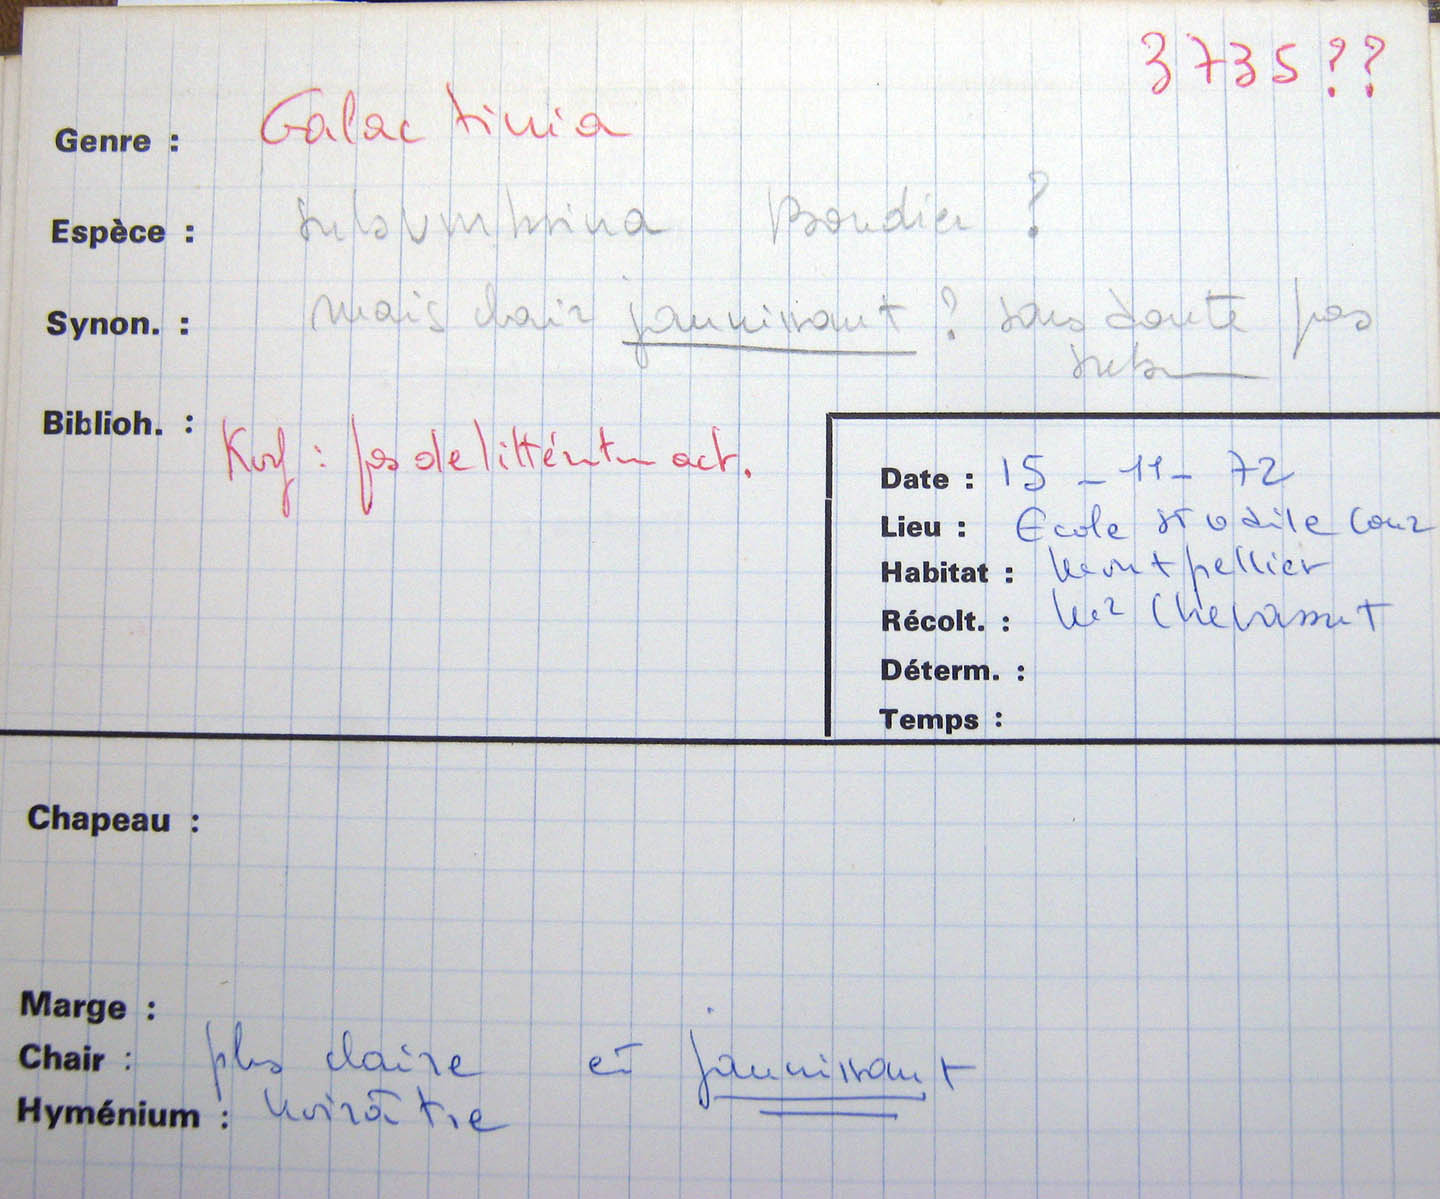 3735 ??
Genre : Galactinia
Espèce : subumbrina Boudier ?
Synon. : mais chair jaunissant ? sans doute pas
sub
Biblioh. : Korf : pas de littératu act.
Date : 15 - 11 - 72
Lieu : Ecole St Odile Cour
Habitat : Montpellier
Récolt. : Chevassut
Déterm. :
Temps :
Chapeau :
Marge :
Chair : plus claire et jaunissant
Hyménium : noirâtre